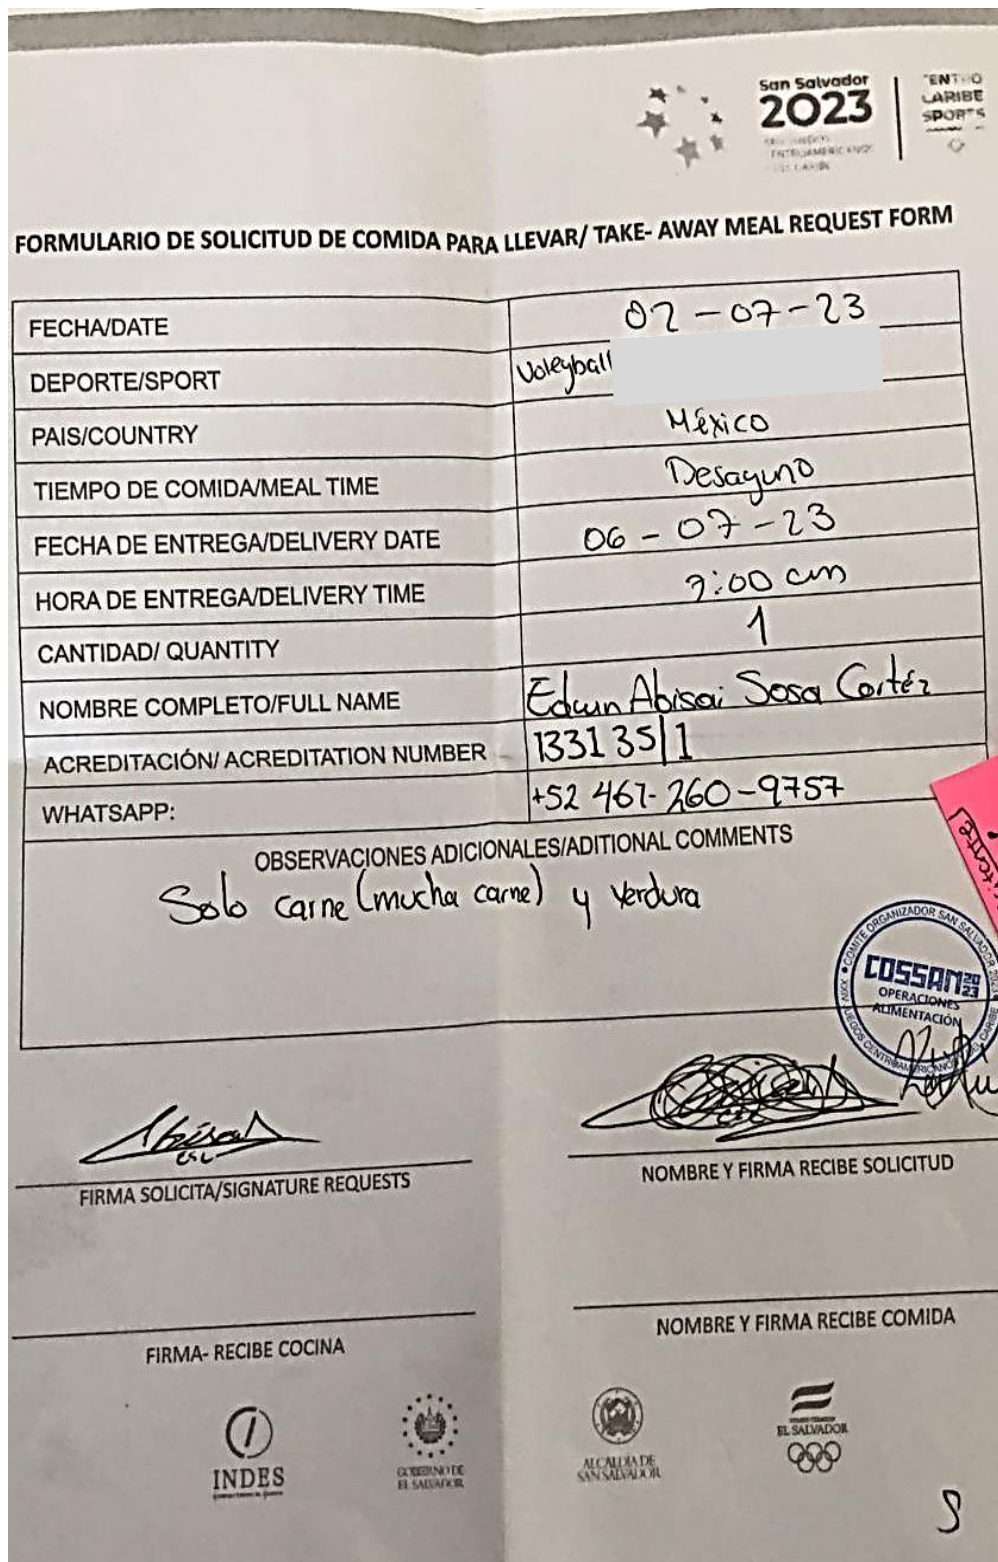 San Salvador
2023
CARIBE
SPORTS
FORMULARIO DE SOLICITUD DE COMIDA PARA LLEVAR/ TAKE- AWAY MEAL REQUEST FORM
FECHA/DATE 02-07-23
DEPORTE/SPORT Voleyball
PAIS/COUNTRY México
TIEMPO DE COMIDA/MEAL TIME Desayuno
FECHA DE ENTREGA/DELIVERY DATE 06-07-23
HORA DE ENTREGA/DELIVERY TIME 7:00 am
CANTIDAD/ QUANTITY 1
NOMBRE COMPLETO/FULL NAME Edwin Abisai Sosa Cortéz
ACREDITACIÓN/ ACREDITATION NUMBER 133135|1
WHATSAPP: +52 467-260-9757
OBSERVACIONES ADICIONALES/ADITIONAL COMMENTS
Solo carne (mucha carne) y verdura
COMITE ORGANIZADOR SAN SALVADOR 2023
COSSAN 2023
OPERACIONES
ALIMENTACIÓN
JUEGOS CENTROAMERICANOS DEL CARIBE
FIRMA SOLICITA/SIGNATURE REQUESTS
NOMBRE Y FIRMA RECIBE SOLICITUD
FIRMA- RECIBE COCINA
NOMBRE Y FIRMA RECIBE COMIDA
INDES
GOBIERNO DE
EL SALVADOR
ALCALDIA DE
SAN SALVADOR
EL SALVADOR